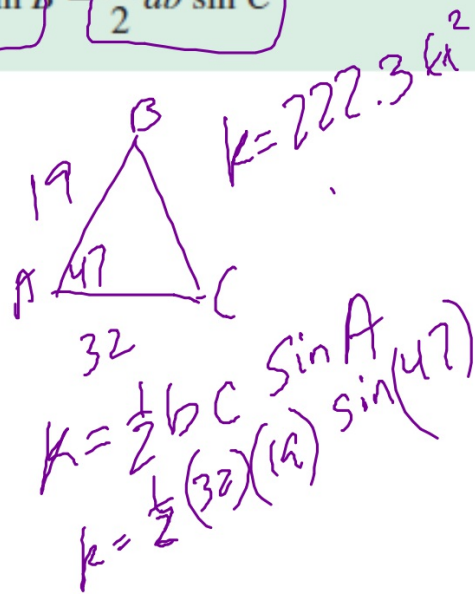 B = 1/2 ab sin C
K = 222.3 ft²
B
19
A 47 C
32
K = 1/2 b c sin A
k = 1/2 (32)(19) sin(47)